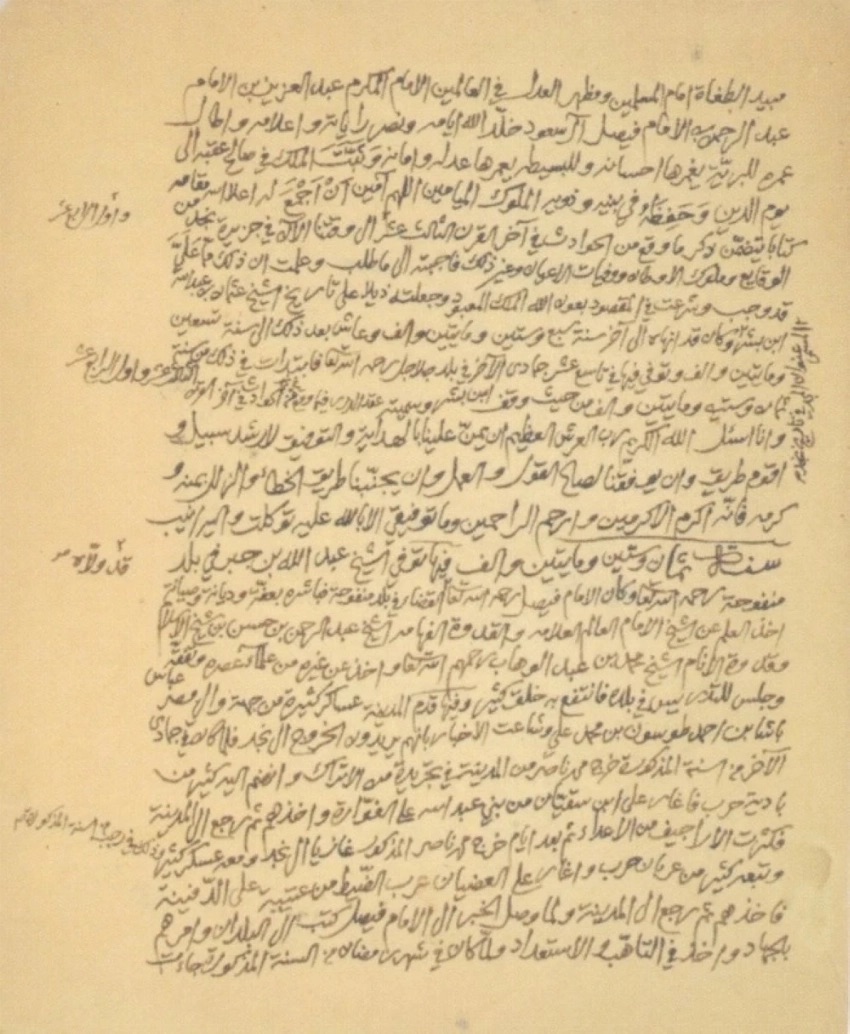 مبيد الطغاة امام المسلمين ومظهر العدل في العالمين الامام المكرم عبد العزيز بن الامام
عبد الرحمن بن الامام فيصل آل سعود خلد الله ايامه ونصر راياته واعلامه واطال
عمره للبرية يغمرها احسانه وللبسيطة يعمرها عدله وامانه وَثَبَّتَ الملك في صالح عقبه الى
يوم الدين وَحَفِظَهُ في بنيه وذويه الملوك الميامين اللهم آمين اَنْ اَجْمَعَ له اعلا الله مقامه
كتابا يتضمن ذكر ما وقع من الحوادث في آخر القرن الثالث عشر الى وقتنا الآن في جزيرة نجد من
واول الرابع عشر
الوقايع وملوك الاوطان ووفيات الاعيان وغير ذلك فاجبته الى ما طلب وعلمت ان ذلك مما عليّ
قد وجب وشرعت في المقصود بعون الله الملك المعبود وجعلته ذيلا على تاريخ الشيخ عثمان بن عبد الله
ابن بشر وكان قد انهاه الى آخر سنة سبع وستين ومايتين والف وعاش بعد ذلك الى سنة تسعين
المسمى عنوان المجد في تاريخ نجد
ومايتين والف وتوفي فيها في تاسع عشر جمادى الآخر في بلد جلاجل رحمه الله تعالى فابتدأت في ذلك من سنة
ثمان وستين ومايتين والف من حيث وقف ابن بشر وسميته عقد الدرر فيما وقع في نجد من الحوادث في آخر القرن
الثالث عشر واول الرابع عشر
وانا اسئل الله الكريم رب العرش العظيم ان يمن علينا بالهداية والتوفيق لارشد سبيل و
اقوم طريق وان يوفقنا لصالح القول والعمل وان يجنّبنا طريق الخطاء والزلل بمنه و
كرمه فانّه اكرم الاكرمين وارحم الراحمين وما توفيقي الا بالله عليه توكلت واليه انيب
سنة ثمان وستين ومايتين والف فيها توفي الشيخ عبد الله بن جبر في بلد
منفوحة رحمه الله تعالى وكان الامام فيصل رحمه الله تعالى القضاء في بلد منفوحة فباشره بعفة وديانة وصيانة
قد ولّاه
اخذ العلم عن الشيخ الامام العالم العلامه والقدوة الفهامه الشيخ عبد الرحمن بن حسن بن شيخ الاسلام
وقدوة الانام الشيخ محمد بن عبد الوهاب رحمهم الله تعالى واخذ عن غيره من علماء عصره وتفقه
وجلس للتدريس في بلده فانتفع به خلق كثير وفيها قدم المدينة عساكر كثيرة من جهة والي مصر عباس
باشا بن احمد طوسون بن محمد علي وشاعت الأخبار بانهم يريدون الخروج الى نجد فلما كان في جمادى
الآخر من السنة المذكورة خرج من المدينة في تجريدة من الاتراك وانضم اليه كثير من
بادية حرب فاغار على ابن سقيان من بني عبد الله على الفوّارة واخذهم ثم رجع الى المدينة
فكثرت الاراجيف من الأعداء ثم بعد ايام خرج المذكور غازيا الى نجد ومعه عسكر كثير
وذلك في رجب من السنة المذكورة
وتبعه كثير من عربان حرب واغار على العضيان عرب الضّيط من عتيبة على الدّفينة
فاخذهم ثم رجع الى المدينة ولما وصل الخبر الى الامام فيصل كتب الى البلدان وامرهم
بالجهاد واخذ في التاهّب والاستعداد ولما كان في شهر رمضان من السنة المذكورة جاءت